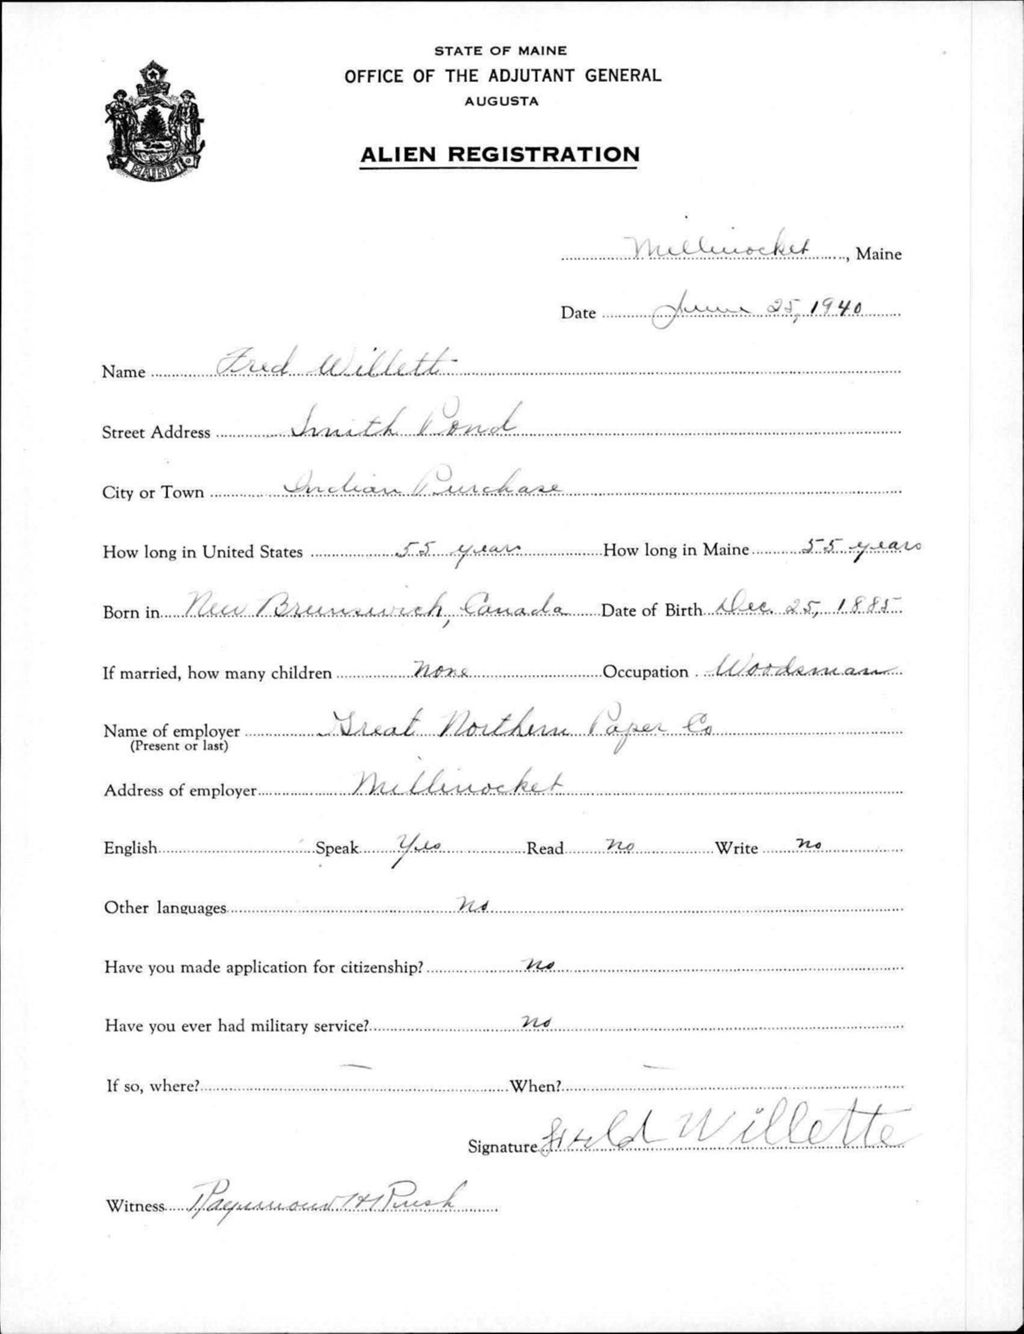 STATE OF MAINE
OFFICE OF THE ADJUTANT GENERAL
AUGUSTA
ALIEN REGISTRATION
MAINE
Millinocket, Maine
Date June 25, 1940
Name Fred Willett
Street Address Smith Pond
City or Town Indian Purchase
How long in United States 55 years How long in Maine 55 years
Born in New Brunswick, Canada Date of Birth Dec. 25, 1885
If married, how many children none Occupation Woodsman
Name of employer Great Northern Paper Co
(Present or last)
Address of employer Millinocket
English Speak Yes Read no Write no
Other languages no
Have you made application for citizenship? no
Have you ever had military service? no
If so, where? — When? —
Signature Willette
Witness Raymond H Rush